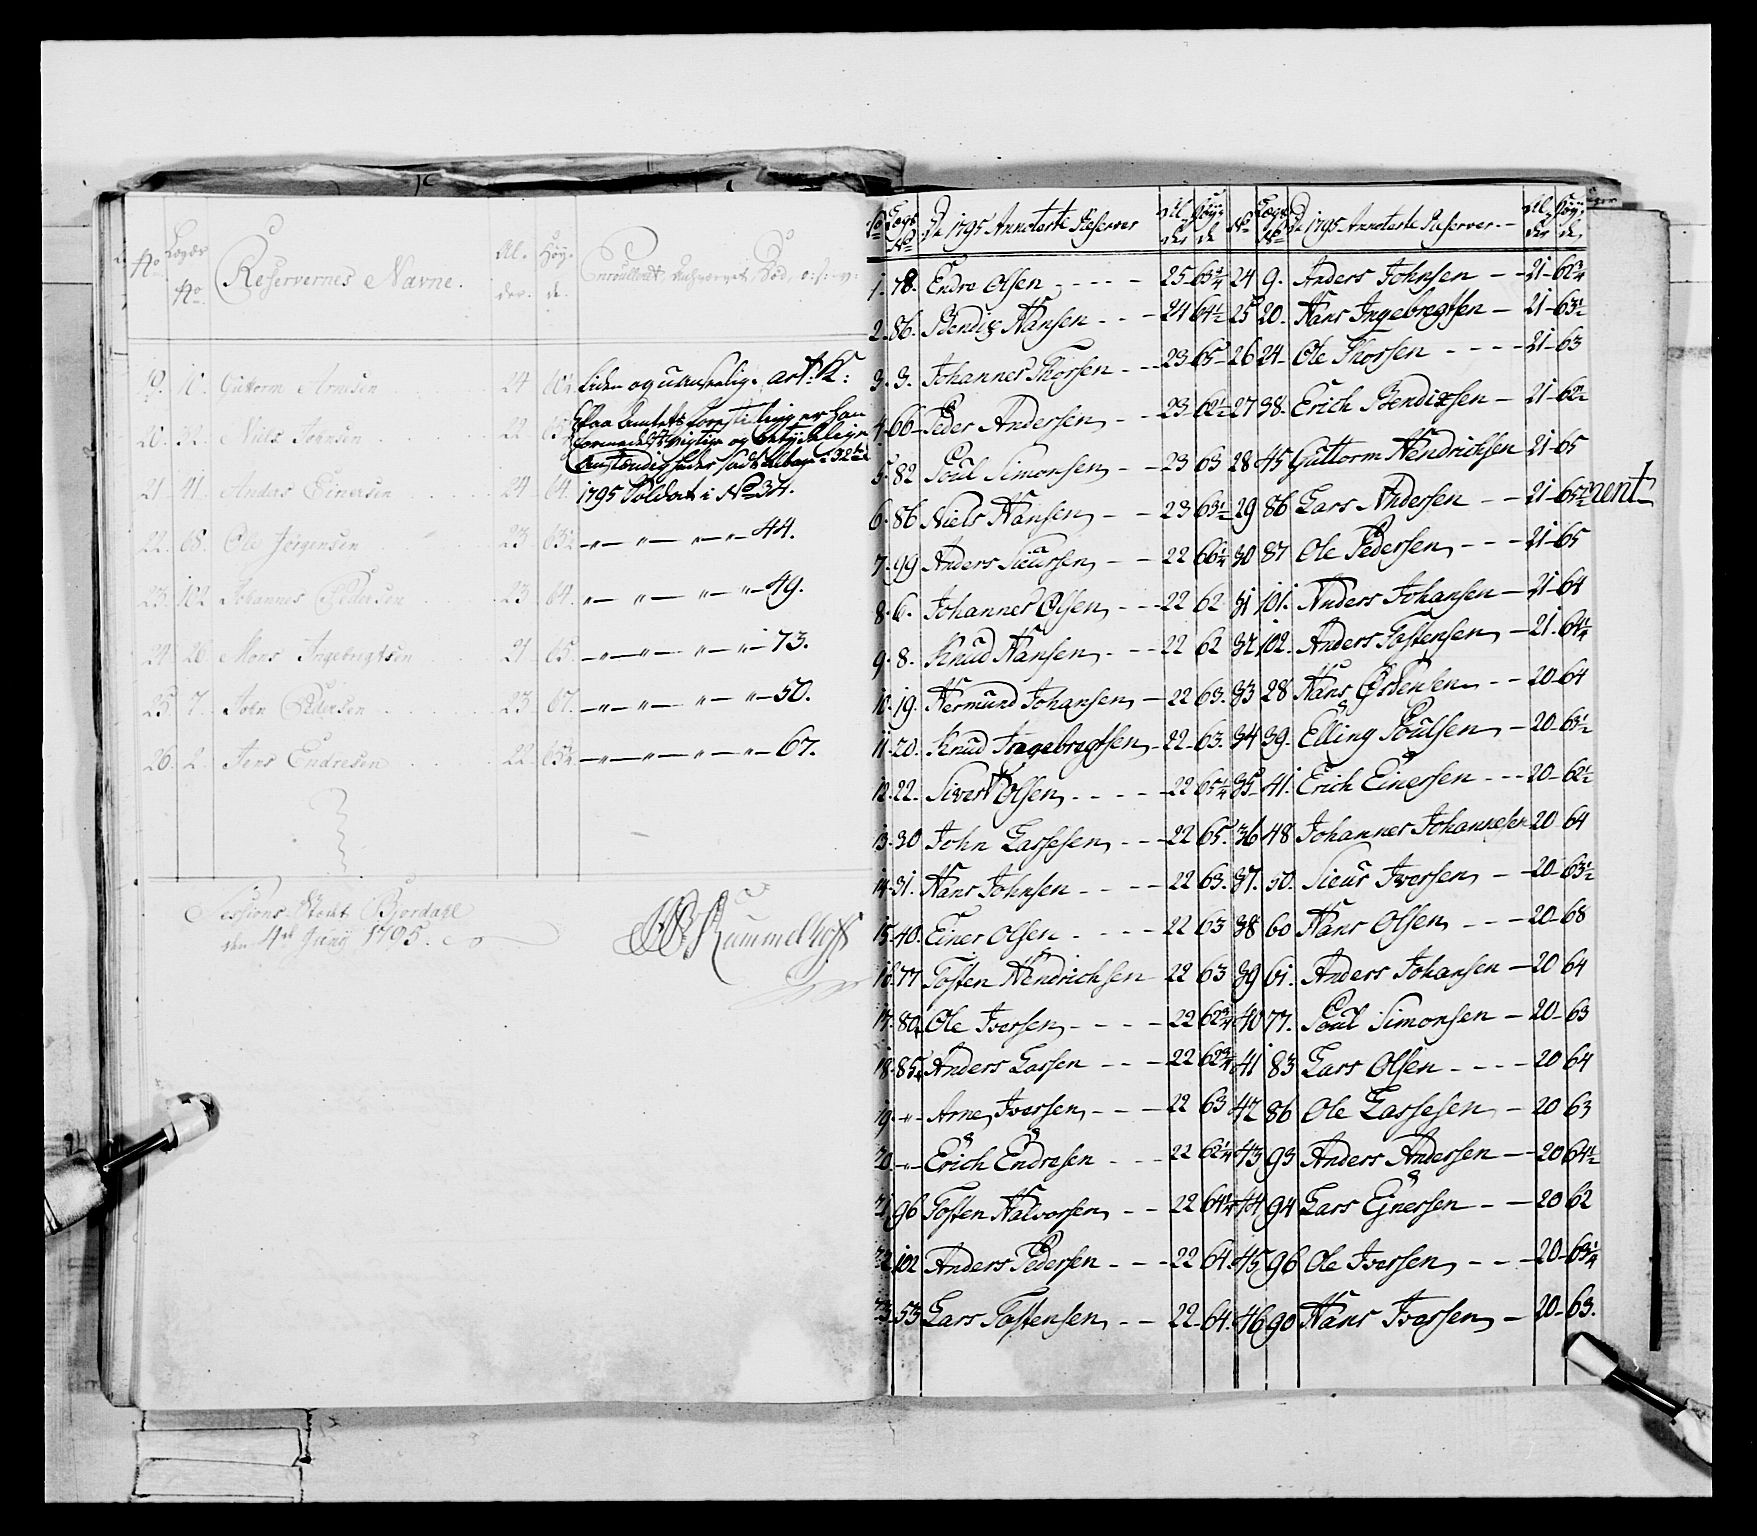 No Lægs No Reservernes Navne. Al- der. Høy- de.
19. 10. Guttorm Arnesen 24 liden og uanseelig. art: K:
20. 32. Niels Johnsen 22
21 41. Anders Einersen 24 64. 1795 Soldat i No 34.
22. 68. Ole Jørgensen 23 63½ —"— "— "—"— 44.
23. 102 Johannes Pedersen 23 64. "— "— "— "— 49.
24 26 Mons Ingebrigtsen 21 65. —"— "— "— "— 73.
25. 7. John Pedersen 23 67. —"— "— "— "— 50.
26. 2. Jens Endresen 22 —"—"— "— "— 67.
Sessions Stedet Bjordahl
den 4de Junij 1795.
Rummelhoff
No Lægs No De 1795 Annoterte Reserver Al- der Høy- de
1. 78. Endre Olsen - - - - 25 63¼
2. 86. Bendix Hansen - - - 24 64½
3. 3. Johannes Thorsen - - - 23 65
4. 66 Peder Andersen - - 23 62½
5. 82 Poul Simonsen - - 23 63
6. 86 Niels Hansen - - 23 63½
7. 99 Anders Siursen - - 22 66¼
8. 6. Johannes Olsen - - - 22 62
9. 8. Knud Hansen - - - 22 62
10. 19. Hermund Johansen - 22 63.
11. 20. Knud Ingebregtsen - 22 63.
12. 22. Sivert Olsen - - - - 22 65¼
13. 30 John Lassesen - - - 22 65.
14. 31. Hans Johnsen - - - - 22 63.
15. 40. Einer Olsen - - - - 22 63
16. 77 Tosten Hendrichsen 22 63
17. 80. Ole Iversen - - - - 22 62¾
18. 85. Anders Larsen - - - 22 62¾
19. -"- Arne Iversen - - - 22 63
20. -"- Erich Endresen - - - 22 62¼
21. 96 Tosten Halvorsen - - 22 64¼
22. 102 Anders Pedersen - - - 22 64.
23. 53 Lars Tostensen - - 22 64.
No Lægs No De 1795 Annoterte Reserver - Al- der Høy- de
24 9. Anders Johnsen - - 21 62¾
25 20. Hans Ingebregtsen - 21 63½
26 24. Ole Thorsen - - - - 21 63
27 38. Erich Bendixsen - 21 62½
28 45 Guttorm Hendrichsen 21 65
29 86 Lars Andersen - - 21 65½
30 87 Ole Pedersen - - - 21 65
31 101. Anders Johansen - 21 64
32 102. Anders Tostensen - 21 64¼
33 28 Hans Østensen - - 20 64
34 39. Elling Poulsen - 20 63½
35 41. Erich Einersen - - - 20 62½
36 48 Johannes Johannesen 20 64
37. 50. Siur Iversen - 20 63½
38 60 Hans Olsen - - - 20 68
39 61. Anders Johansen - 20 64
40 77. Poul Simonsen - 20 63
41 83 Lars Olsen - - - - 20 64
42 86 Ole Lassesen - 20 63
43 93 Anders Andersen - 20 64½
44 94 Lars Ejnersen - - 20 62
45 96 Ole Iversen - - - 20 63¼
46 90 Hans Iversen - 20 63.
ment